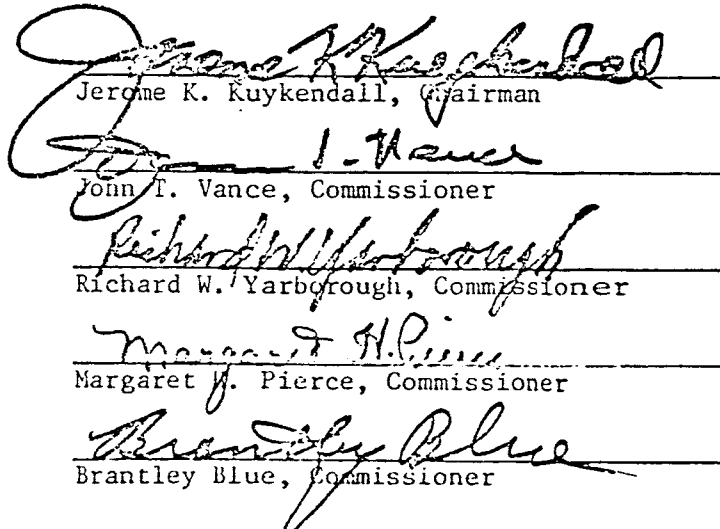 Jerome K Kuykendall
Jerome K. Kuykendall, Chairman
John T. Vance
John T. Vance, Commissioner
Richard W. Yarborough
Richard W. Yarborough, Commissioner
Margaret H. Pierce
Margaret H. Pierce, Commissioner
Brantley Blue
Brantley Blue, Commissioner